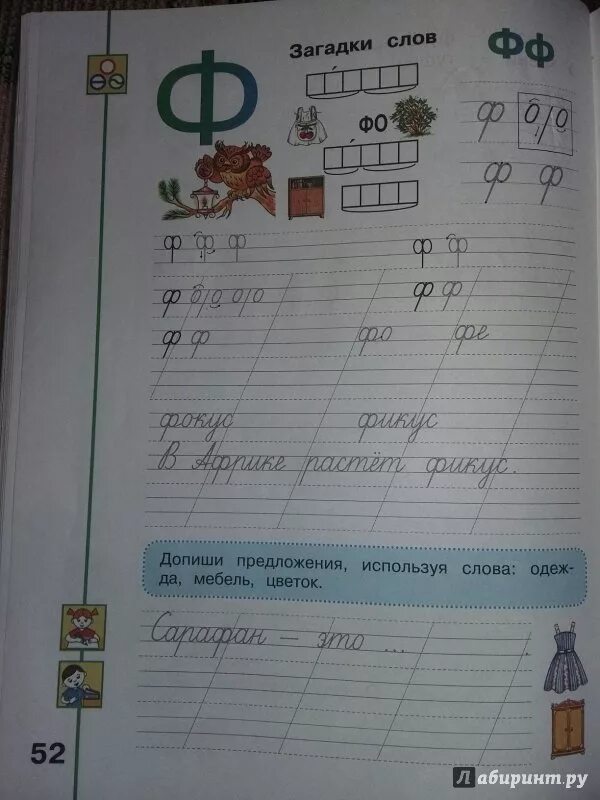 Загадки слов
Ф
Фф
ФО
ф о/о
ф ф
ф ф ф ф ф
ф о/о о/о ф ф
ф ф фо фе
фокус фикус
В Африке растёт фикус.
Допиши предложения, используя слова: одеж-
да, мебель, цветок.
Сарафан — это ... .
52
Лабиринт.ру